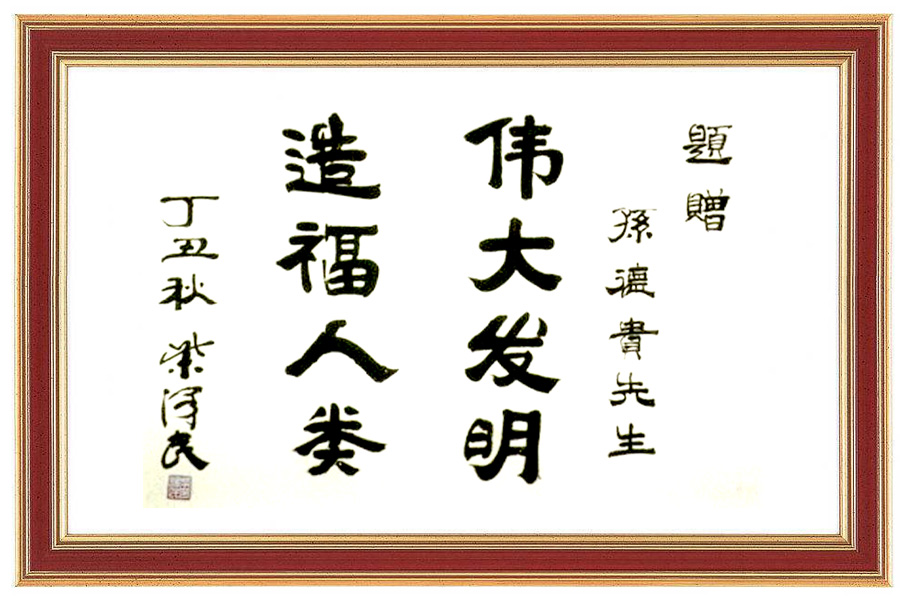 題贈
孫德貴先生
伟大发明
造福人类
丁丑秋 柴泽民